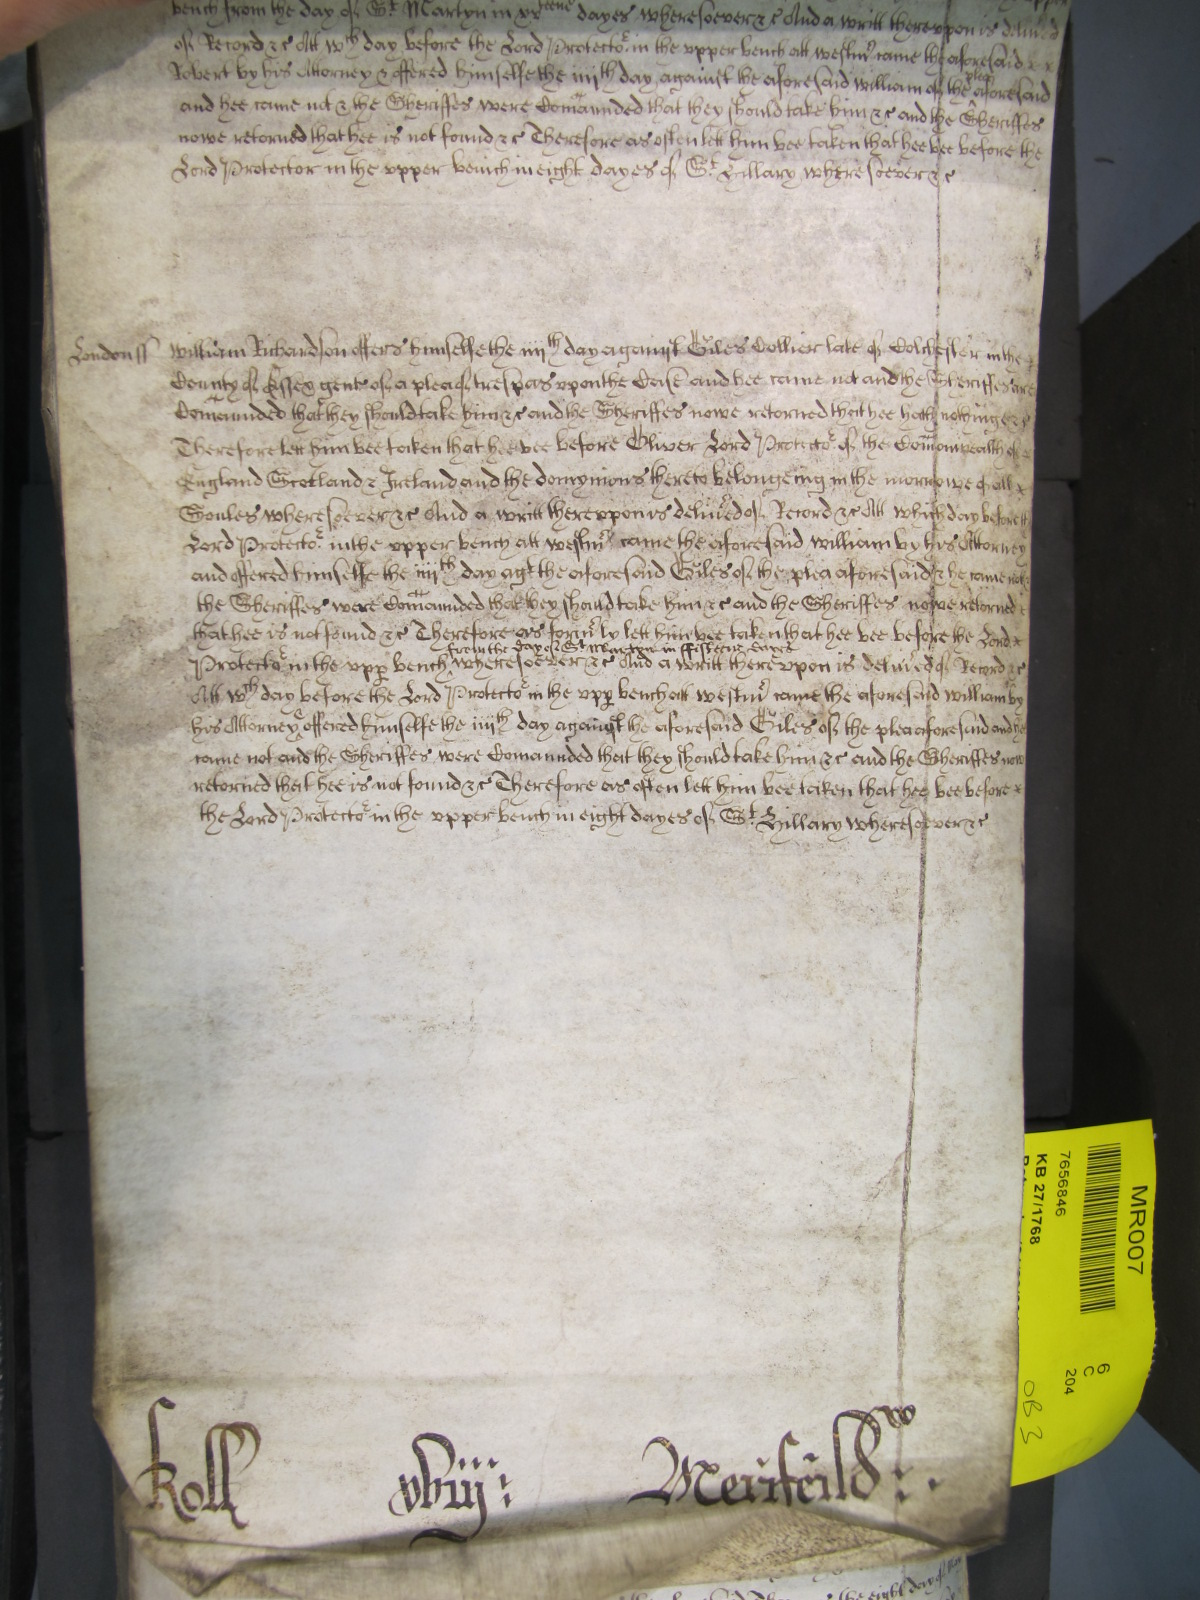 bench from the day of St Martyn in xv teene dayes wheresoever &c And a writt thereupon is deliv̄ed
of Record &c Att wch day before the Lord Protector in the upper bench att westmr came the aforesaid
Robert by his Attorney & offered himselfe the iiijth day against the aforesaid william of the plea aforesaid
and hee came not & the Sheriffes were Com̄aunded that they should take him &c and the Sheriffes
nowe retorned that hee is not found &c Therefore as often lett him bee taken that hee bee before the
Lord Protector in the upper bench in eight dayes of St Hillary wheresoever &c
London ss william Richardson offers himselfe the iiijth day against Giles Collier late of Colchester in the
County of Essex gent of a plea of trespas upon the Case and hee came not and the Sheriffes are
Com̄aunded that they should take him &c and the Sheriffes nowe retorned that hee hath nothinge &c
Therefore lett him bee taken that hee bee before Oliver Lord Protector of the Com̄onwealth of
England Scotland & Ireland and the domynions thereto belongeing in the morrowe of all
Soules wheresoever &c And a writt thereupon is deliv̄ed of Record &c Att which day before the
Lord Protector in the upper bench att westmr came the aforesaid william by his Attorney
and offered himselfe the iiijth day agt the aforesaid Giles of the plea aforesaid & he came not &
the Sheriffes were Com̄aunded that they should take him &c and the Sheriffes nowe retorned
that hee is not found &c Therefore as form̄ly lett him bee taken that hee bee before the Lord
from the day of St Martyn in fifteene dayes
Protector in the upp bench wheresoever &c And a writt thereupon is deliv̄ed of Record &c
Att wch day before the Lord Protector in the upp bench att westmr came the aforesaid william by
his Attorney & offered himselfe the iiijth day against the aforesaid Giles of the plea aforesaid and he
came not and the Sheriffes were Com̄aunded that they should take him &c and the Sheriffes now
retorned that hee is not found &c Therefore as often lett him bee taken that hee bee before
the Lord Protector in the upper bench in eight dayes of St Hillary wheresoever &c
Roll xviij: Merifeild
MR007
7656846
KB 27/1768
6
C
204
OB 3
the eight day of